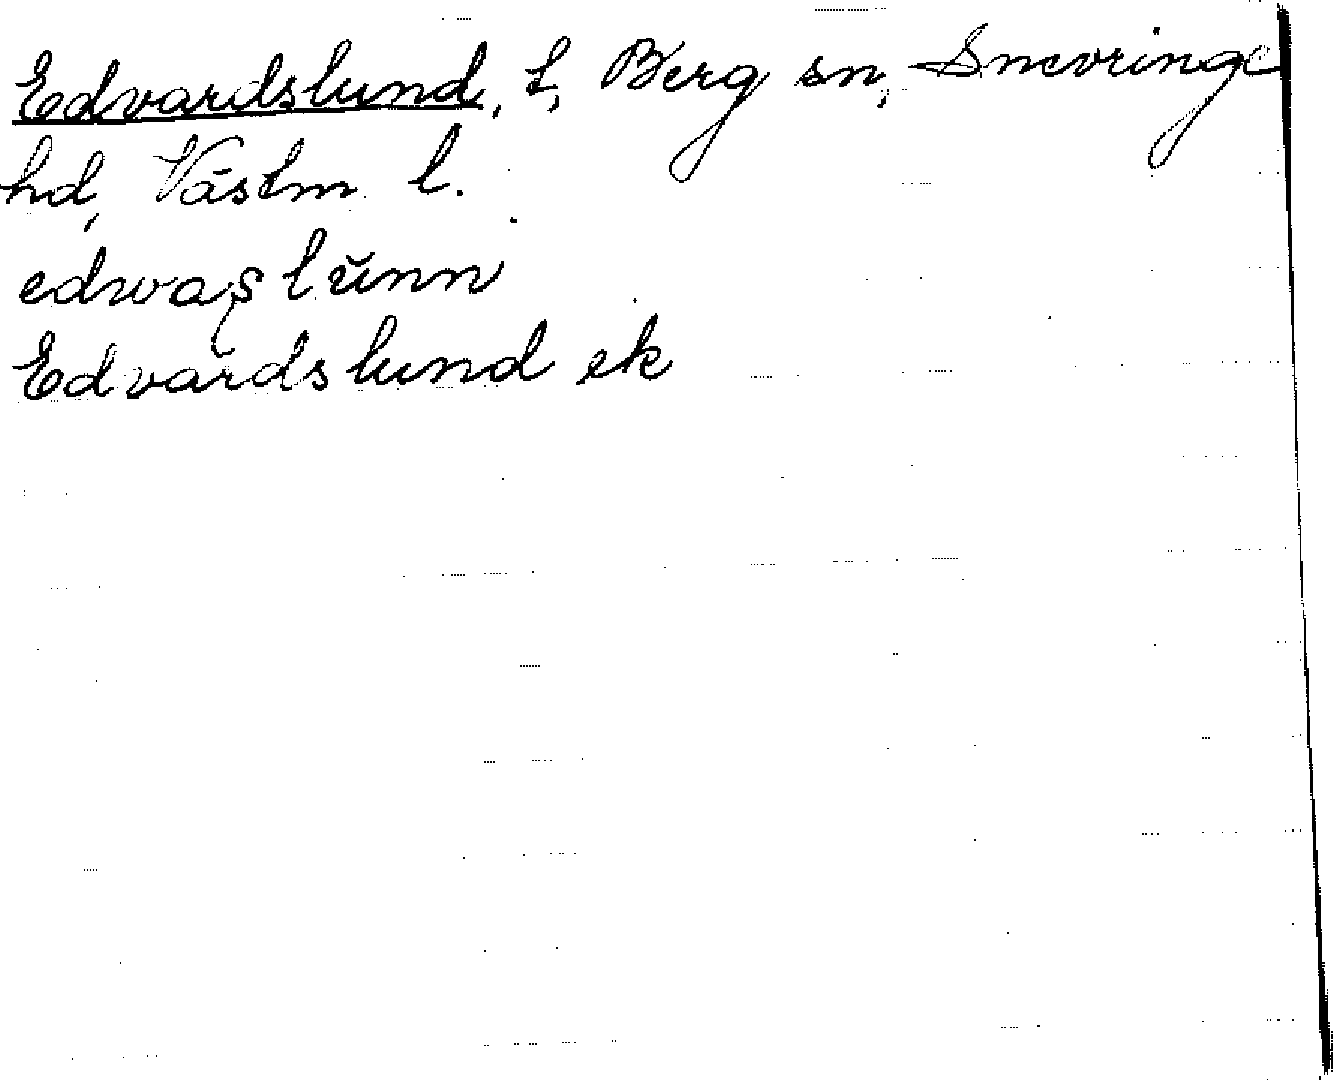 Edvardslund, t, Berg sn, Snevringe
hd, Västm. l.
edvaʂlŭnn
Edvardslund ek